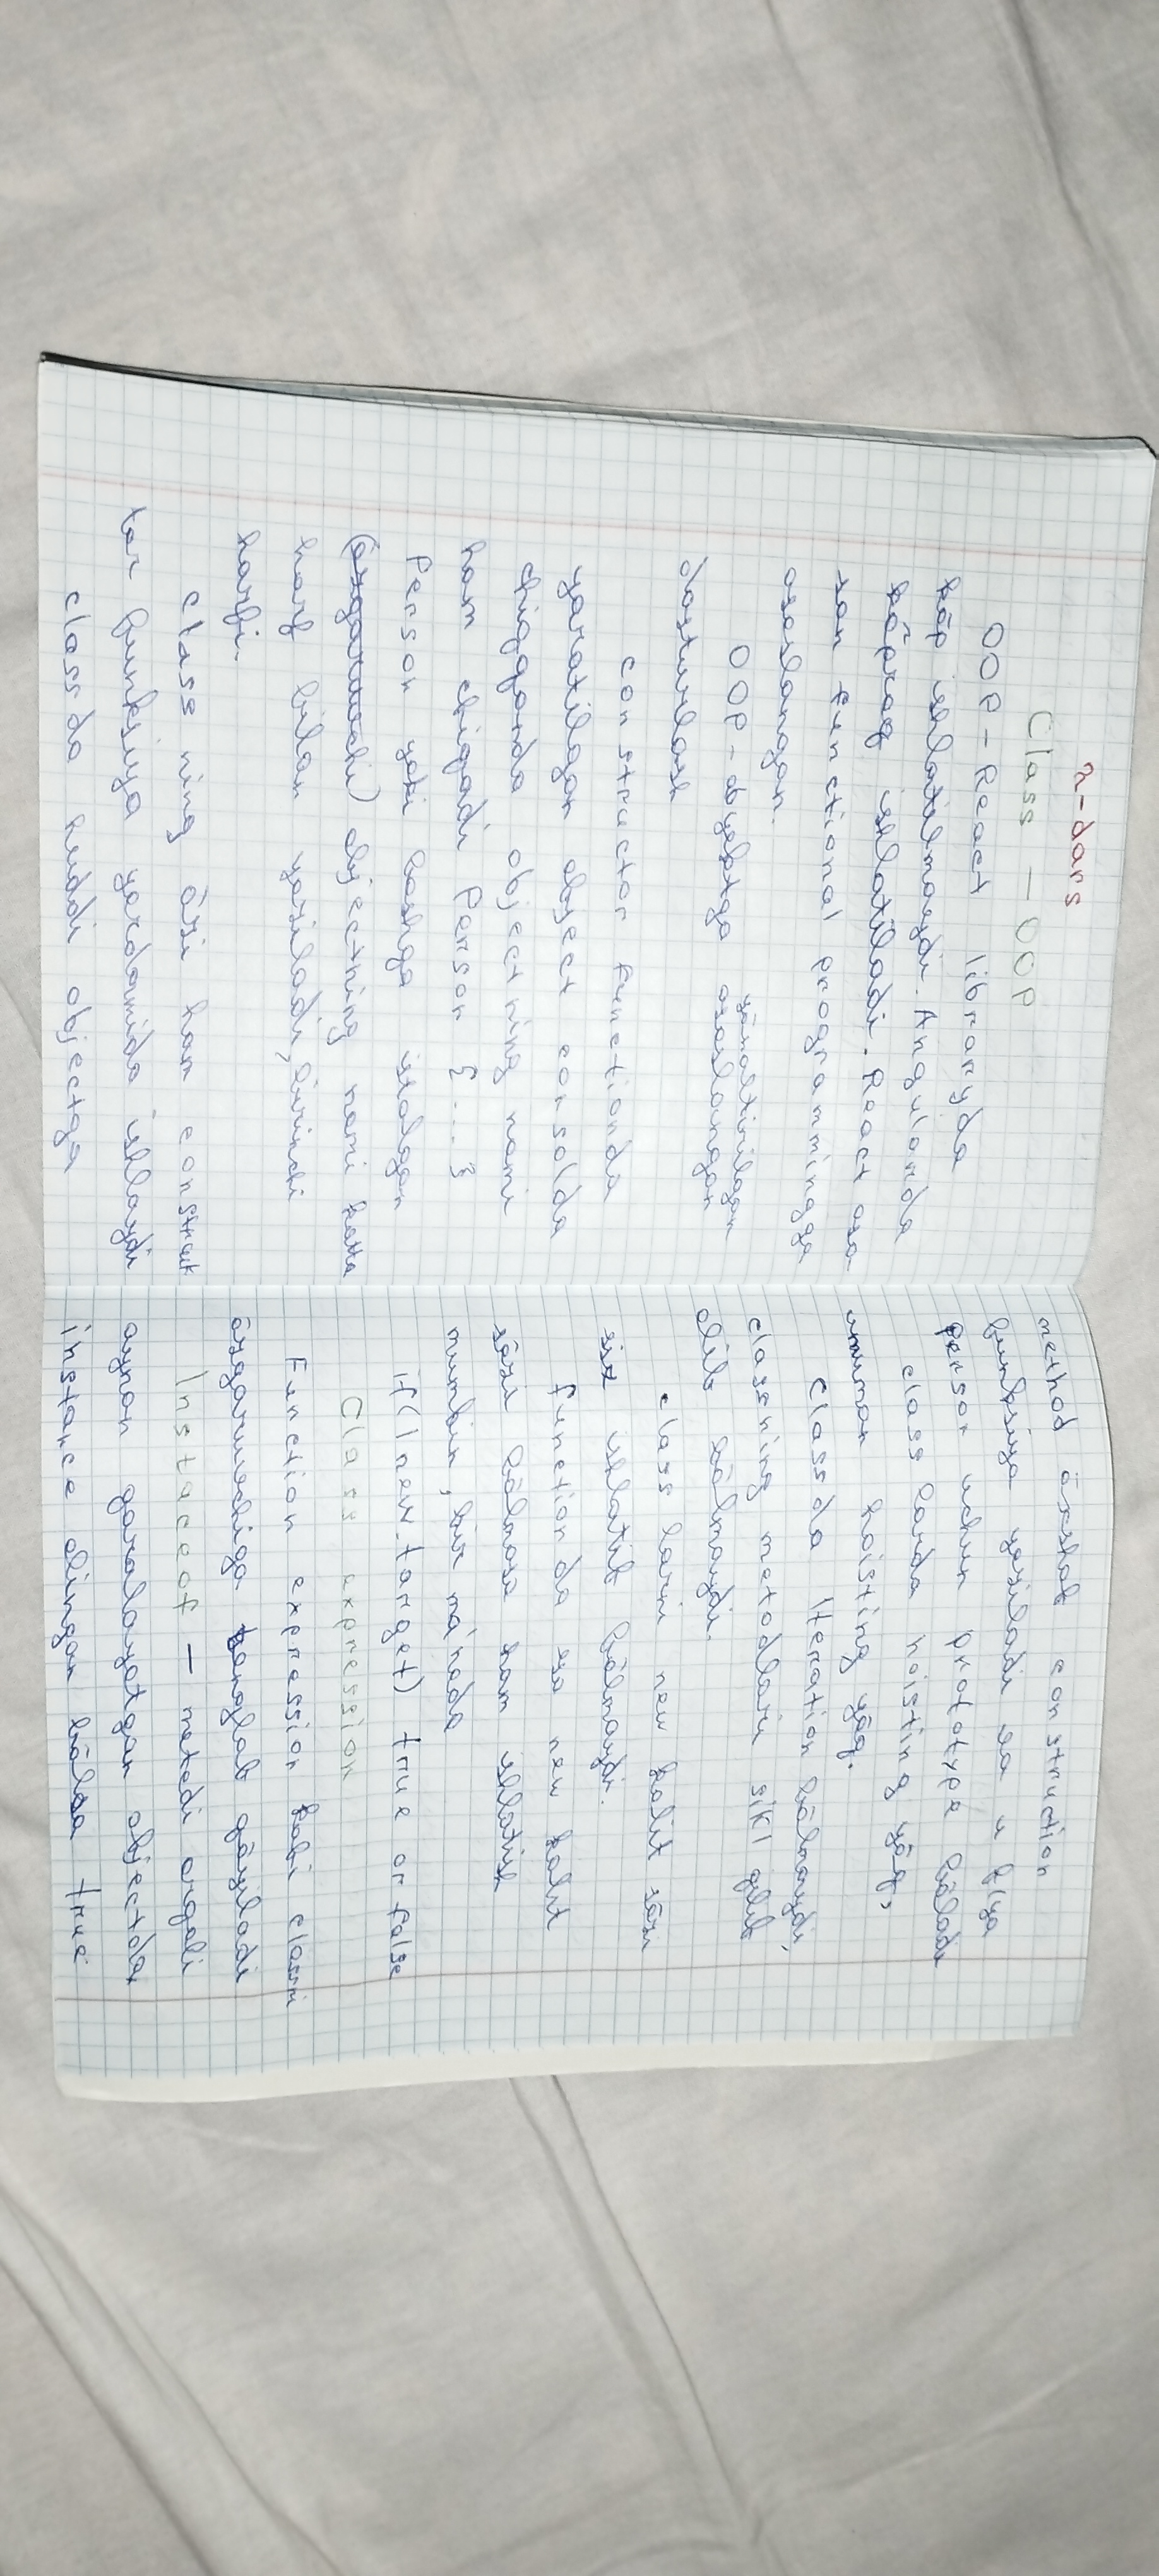 2-dars
Class — OOP
OOP-React libraryda
kōp ishlatilmaydi. Angularda
kōproq ishlatiladi. React aso
san functional programmingga
asoslangan.
yōnaltirilgan
OOP-obyektga asoslangan
dasturlash
constructor functionda
yaratilgan object consolda
chiqqanda objectning nomi
ham chiqadi Person {....}
Person yoki boshqa istalgan
(ōzgaruvchi) objectning nomi katta
harf bilan yoziladi, birinchi
harfi.
class ning ōzi ham construk
tor funksiya yordamida ishlaydi
classda huddi objectga
method ōxshab construction
funksiya yoziladi va u f/ya
person uchun prototype bōladi
class larda hoisting yōq,
umuman hoisting yōq.
Classda Iteration bōlmaydi,
classning metodlari sikl qilib
olib bōlmaydi.
class larni new kalit sōzi
siz ishlatib bōlmaydi.
functionda esa new kalit
sōzi bōlmasa ham ishlatish
mumkin, bir ma'noda
if(!new.target) true or false
Class expression
Function expression kabi classni
ōzgaruvchiga tenglab qōyiladi
Instaceof — metodi orqali
aynan qaralayotgan objectdan
instance olingan bōlsa true